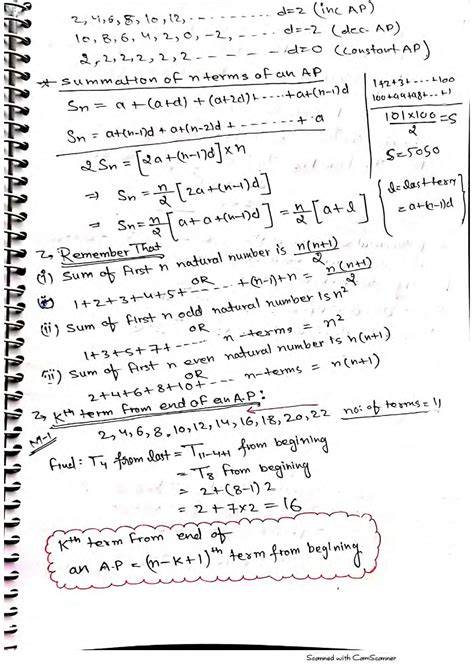 2, 4, 6, 8, 10, 12, ........ d=2 (inc AP)
10, 8, 6, 4, 2, 0, -2, ..... d=-2 (dec. AP)
2, 2, 2, 2, 2, ........ d=0 (Constant AP)
* Summation of n terms of an AP
Sn = a + (a+d) + (a+2d) + ..... + a+(n-1)d
Sn = a+(n-1)d + a+(n-2)d + ....... + a
2Sn = [2a+(n-1)d] x n
⇒ Sn = n/2 [2a+(n-1)d]
⇒ Sn = n/2 [a+a+(n-1)d] = n/2 [a+l]
1+2+3+...+100
100+99+98+...+1
101x100/2 = S
S = 5050
{l = last term
= a+(n-1)d}
2, Remember That
(i) Sum of first n natural number is n(n+1)/2
OR
1+2+3+4+5+ ..... +(n-1)+n = n(n+1)/2
(ii) Sum of first n odd natural number is n²
OR
1+3+5+7+ ..... n-terms = n²
(iii) Sum of first n even natural number is n(n+1)
OR
2+4+6+8+10+.... n-terms = n(n+1)
2, Kth term from end of an A.P:
M-1
2, 4, 6, 8, 10, 12, 14, 16, 18, 20, 22 no: of terms = 11
Find: T4 from last = T11-4+1 from begining
= T8 from begining
= 2+(8-1)2
= 2+7x2 = 16
Kth term from end of
an A.P = (n-k+1)th term from begining
Scanned with CamScanner